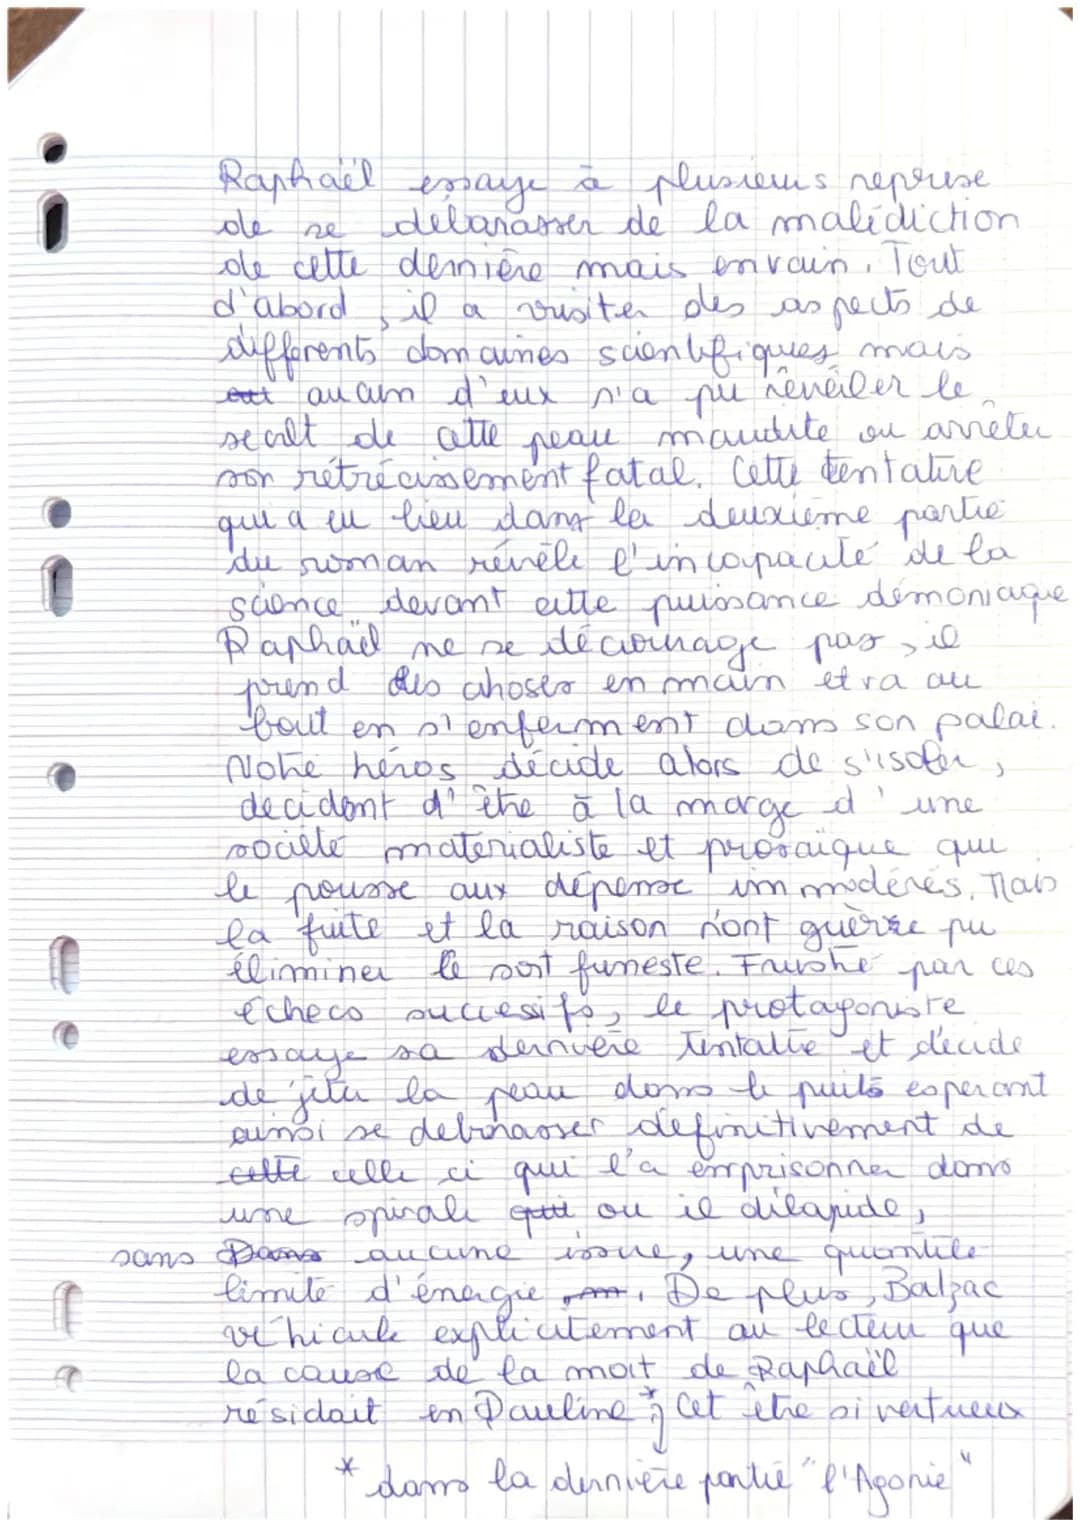 Raphaël essaye à plusieurs reprise
de se débarasser de la malédiction
de cette dernière mais envain. Tout
d'abord, il a visiter des aspects de
différents domaines scientifiques mais
aucun d'eux n'a pu révéler le
secret de cette peau maudite ou arrêter
son rétrécissement fatal. Cette tentative
qui a eu lieu dans la deuxième partie
du roman révèle l'incapacité de la
science devant cette puissance démoniaque
Raphaël ne se décourage pas, il
prend des choses en main et va au
bout en s'enferment dans son palai.
Notre héros décide alors de s'isoler,
decidant d'être à la marge d'une
société materialiste et prosaïque qui
le pousse aux dépense immodérés. Mais
la fuite et la raison n'ont guère pu
éliminer le sort funeste. Frustré par ces
échecs successifs, le protagoniste
essaye sa dernière tentative et décide
de jeter la peau dans le puits esperant
ainsi se debarasser définitivement de
cette celle ci qui l'a emprisonner dans
une spirale qui ou il dilapide,
sans Dans aucune issue, une quantité
limité d'énergie. De plus, Balzac
véhicule explicitement au lecteur que
la cause de la mort de Raphaël
résidait en Pauline * ; Cet être si vertueux
* dans la dernière partie "l'Agonie"